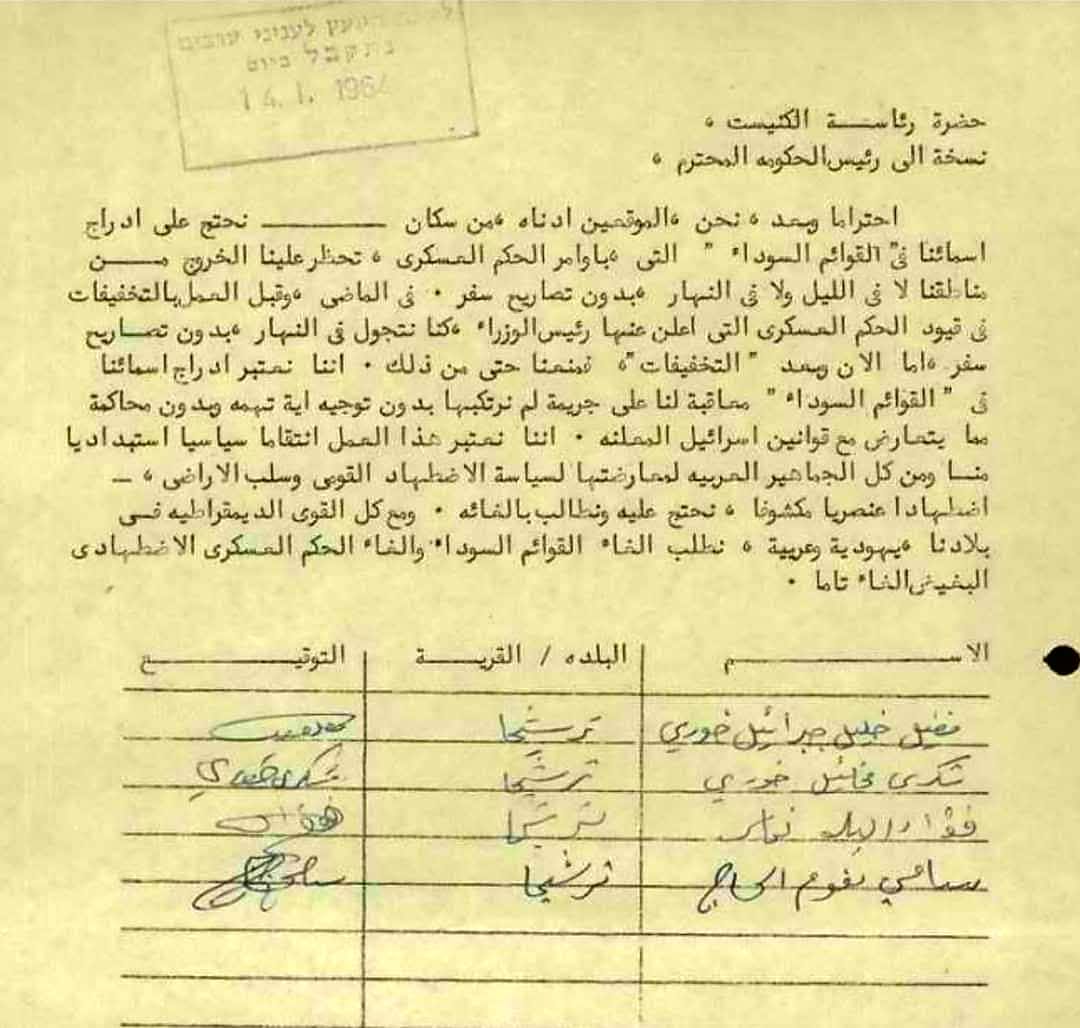 לעניני ערבים
נתקבל ביום
14. I. 1964
حضرة رئاســـة الكنيست ،
نسخة الى رئيس الحكومه المحترم ،
احتراما وبعد ، نحن ،الموقعين ادناه ،من سكان ــــــــــــ نحتج على ادراج
اسمائنا في "القوائم السوداء " التى ،باوامر الحكم العسكرى ، تحظر علينا الخروج مـــن
مناطقنا لا فى الليل ولا فى النهار ،بدون تصاريح سفر . فى الماضى ،وقبل العمل بالتخفيفات
فى قيود الحكم العسكرى التى اعلن عنها رئيس الوزراء ،كنا نتجول فى النهار ،بدون تصاريح
سفر ،اما الان وبعد " التخفيفات "، فمنعنا حتى من ذلك . اننا نعتبر ادراج اسمائنا
فى " القوائم السوداء " معاقبة لنا على جريمة لم نرتكبها بدون توجيه اية تهمه وبدون محاكمة
مما يتعارض مع قوانين اسرائيل المعلنه . اننا نعتبر هذا العمل انتقاما سياسيا استبداديا
منـا ومن كل الجماهير العربيه لمعارضتها لسياسة الاضطهاد القومى وسلب الاراضى ، ــ
اضطهادا عنصريا مكشوفا ، نحتج عليه ونطالب بالغائه . ومع كل القوى الديمقراطيه فــى
بلادنا ،يهودية وعربية ، نطلب الغاء القوائم السوداء والغاء الحكم العسكرى الاضطهادى
البغيض الغاء تاما .
الاســـــــم البلده / القريــة التوقيـــــــع
خليل جبرائيل خوري ترشيحا
شكري مخائيل خوري ترشيحا شكري خوري
فؤاد ترشيحا فؤاد
سامي نعوم الحاج ترشيحا سامي